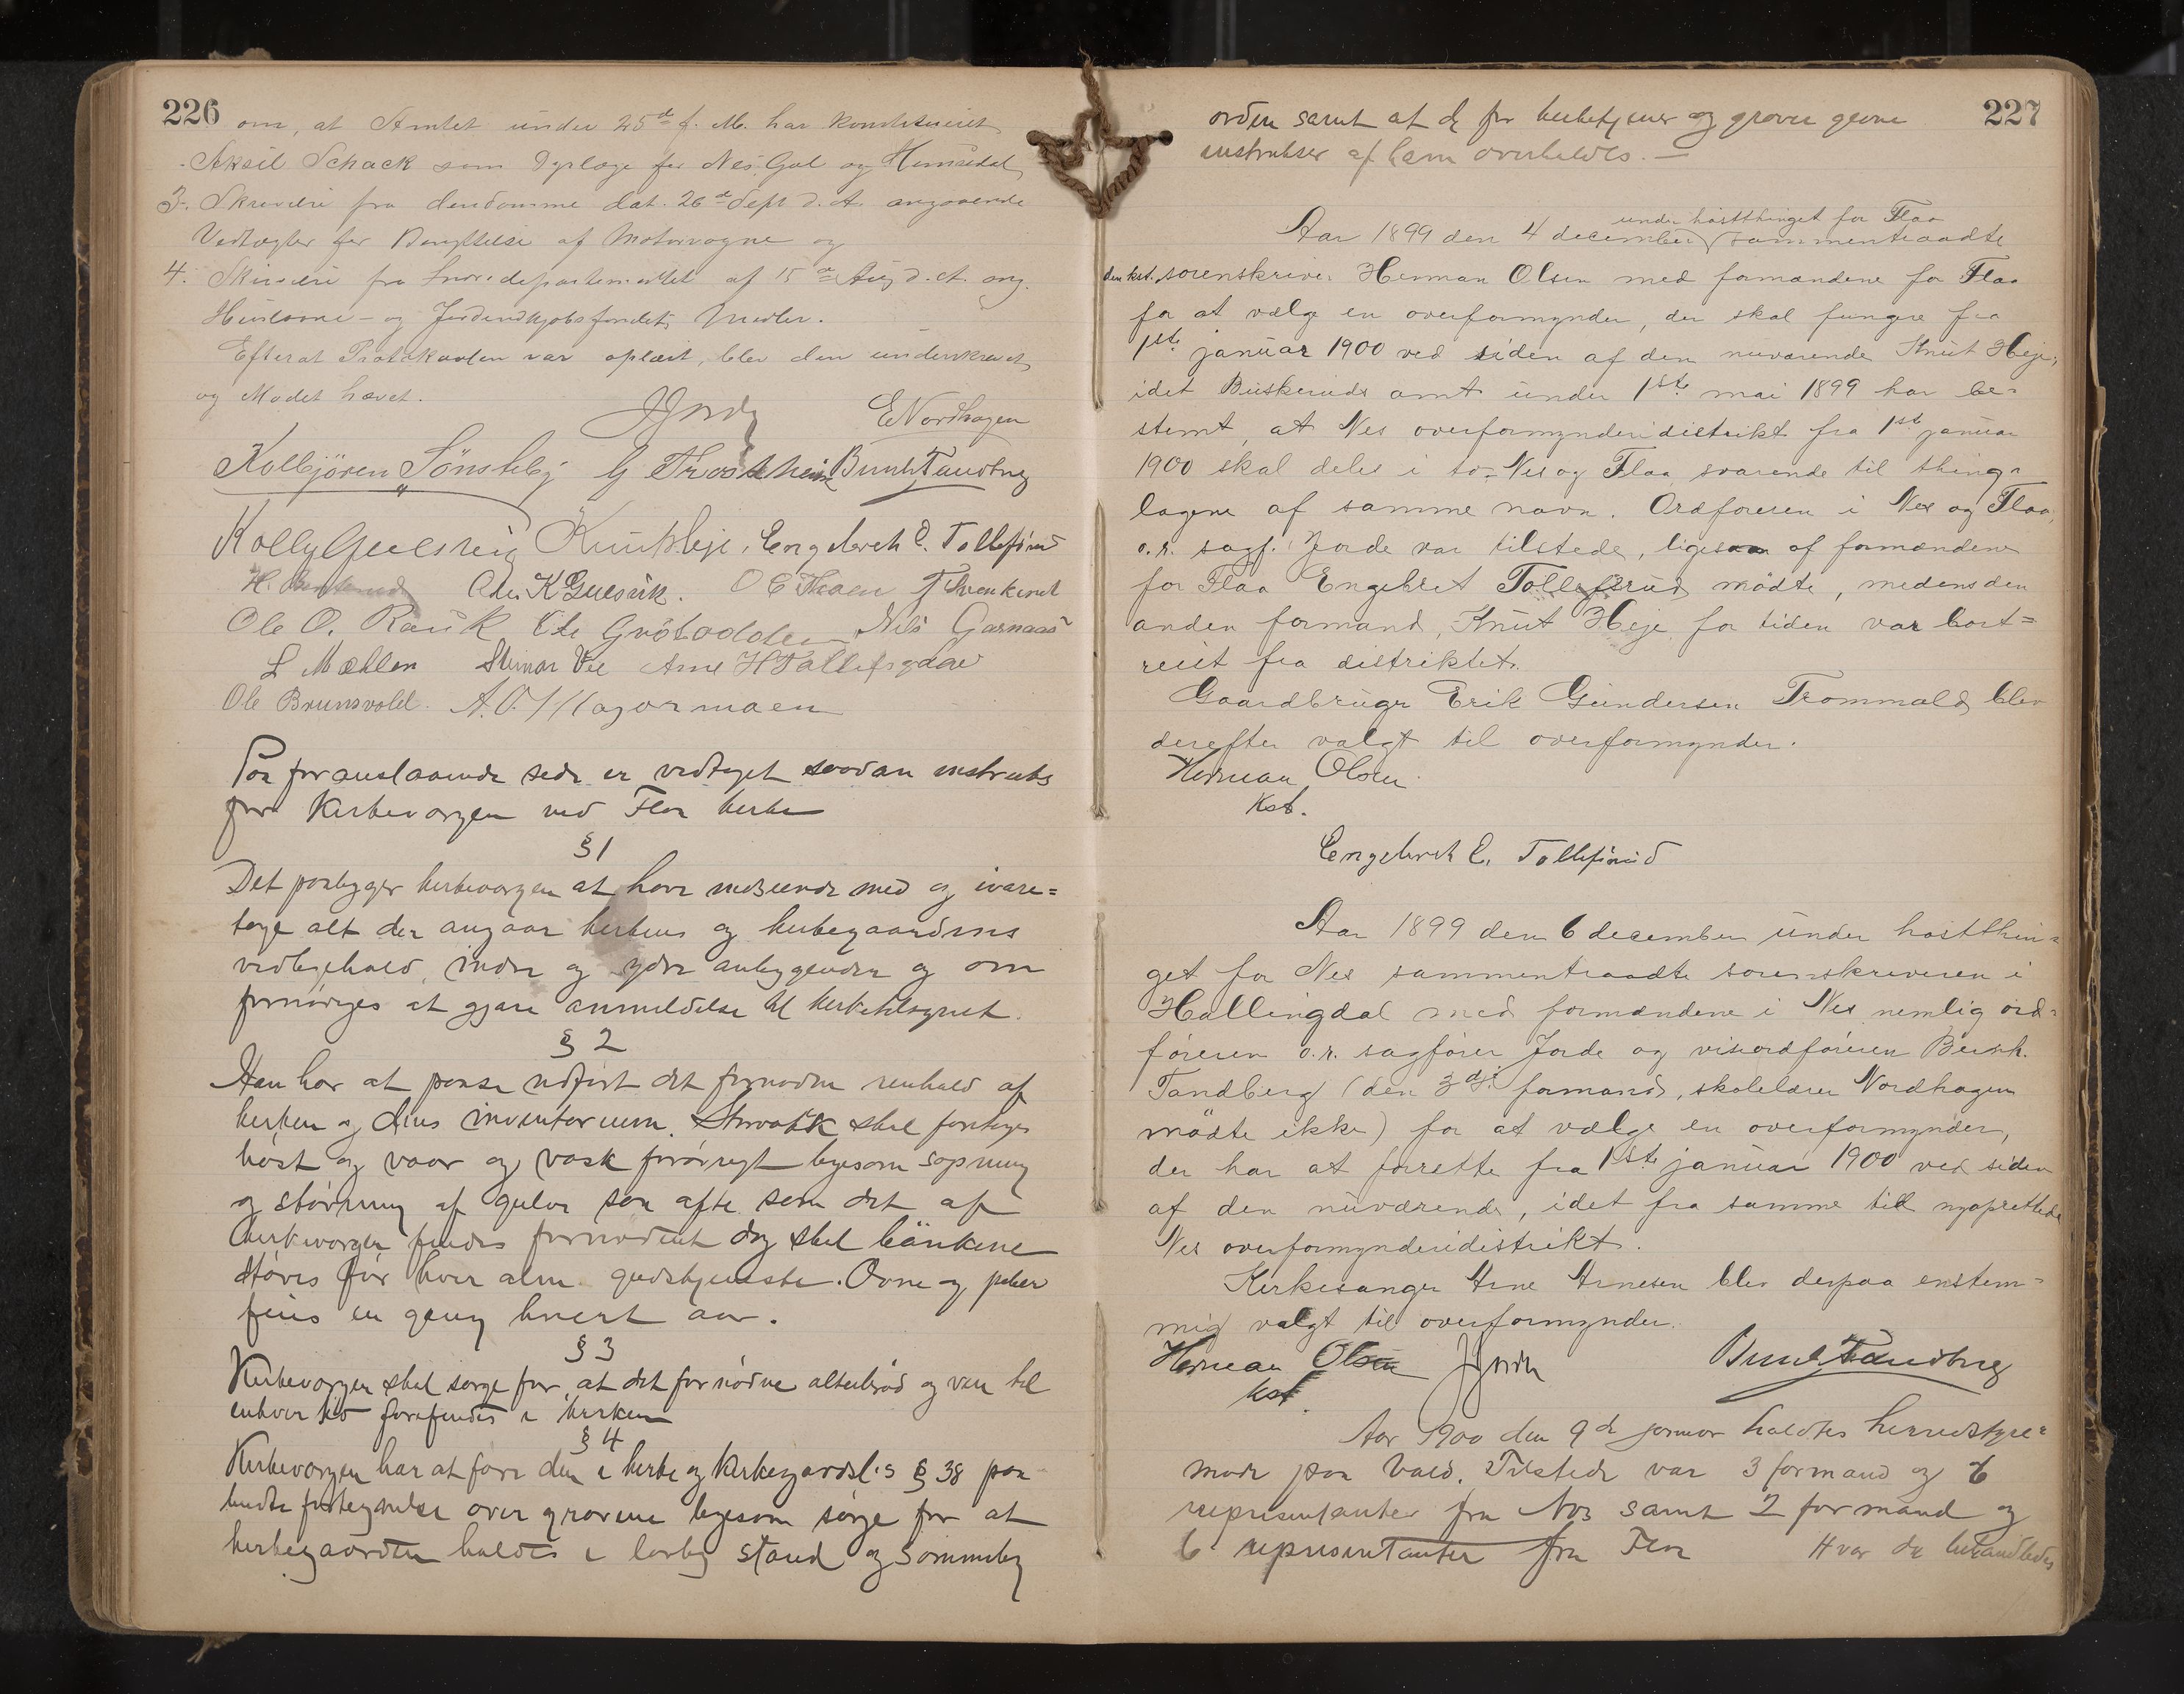 226
om, at Amtet under 25de f. M. har konstitueret
Aksil Schack som Dyrlæge for Nes. Gol og Hemsedal
3. Skrivelse fra densamme dat. 26de Sept d. A. angaaende
Vedtægter for Benyttelse af Motorvogne og
4. Skrivelse fra Indredepartementet af 15de Aug d. A. ang.
og Jordindkjøbsfondets Midler.
Efterat Protokollen var oplæst, blev den underskrevet
og Mødet hævet.
JJorde ENordhagen
Kolbjören Sönsteby G Trostheim Bernh Tandberg
Kolbj Gulsvig Knut Heje, Engebreth E. Tollefsrud
H. Ole K Gulsvik. O E Thoen T Svenkerud
Ole O. Rauk Ole Grötodden Nils Garnaas
L Mæhlen Steinar Vee Arne H Tollefsgaar
Ole Brunsvold. A. O. Hagormoen
Paa foranstaaende sede er vedtaget saadan instruks
for Kirkevorgen ved Flaa kirke
§ 1
Det paaligger kirkevorgen at have indseende med og ivare=
tage alt der angaar kirkens og kirkegaardens
vedligehold, indre og ydre anliggender og om
fornödiges at gjöre anmeldelse til kirketilsynet.
§ 2
Han har at paase udfört det fornödne renhold af
kirken og dens inventarium. Storvask skal foretages
höst og vaar og vask forövrigt ligesom sopning
og störning af gulve saa ofte som det af
kirkevorgen findes fornödent dog skal bänkene
störes för hver alm. gudstjeneste. Ovne og piber
feies en gang hvert aar.
§ 3
Kirkevorgen skal sörge for, at det fornödne alterbröd og vin til
enhver tid forefindes i kirken
§ 4
Kirkevorgen har at före den i kirke og Kirkegaardsl.s § 38 paa
budte fortegnelse over gravene ligesom sörge for at
kirkegaarden holdes i lovlig stand og sömmelig
227
orden samt at de for kirketjener og graver givne
instrukser af ham overholdes. —
under høstthinget for Flaa
Aar 1899 den 4 december sammentraadte
den kst. sorenskriver Herman Olsen med formændene for Flaa
for at vælge en overformynder, der skal fungere fra
1ste januar 1900 ved siden af den nuværende Knut Heje,
idet Buskeruds amt under 1ste mai 1899 har be-
stemt, at Nes overformynderidistrikt fra 1ste januar
1900 skal deles i to - Nes og Flaa, svarende til thing-
lagene af samme navn. Ordföreren i Nes og Flaa,
o.r. sagf. Jorde var tilstede, ligesom af formændene
for Flaa Engebret Tollefsrud mödte, medens den
anden formand, Knut Heje, for tiden var bort=
reist fra distriktet.
Gaardbruger Erik Gundersen Trommald blev
derefter valgt til overformynder.
Herman Olsen
Kst.
Engebreth E. Tollefsrud
Aar 1899 den 6 december under høstthin=
get for Nes sammentraadte sorenskriveren i
Hallingdal med formændene i Nes nemlig ord=
föreren o.r. sagförer Jorde og viseordföreren Bernh.
Tandberg (den 3die formand, skolelærer Nordhagen
mödte ikke) for at vælge en overformynder,
der har at forrette fra 1ste januar 1900 ved siden
af den nuværende, idet fra samme tid nyoprettede
Nes overformynderidistrikt.
Kirkesanger Arne Arnesen blev derpaa enstem=
mig valgt til overformynder.
Herman Olsen JJorde Bernh Tandberg
kst.
Aar 1900 den 9de januar holdtes herredstyre=
möde paa Vold. Tilstede var 3 formænd og 6
representanter fra Nes samt 2 formænd og
6 representanter fra Flaa Hvor da behandledes